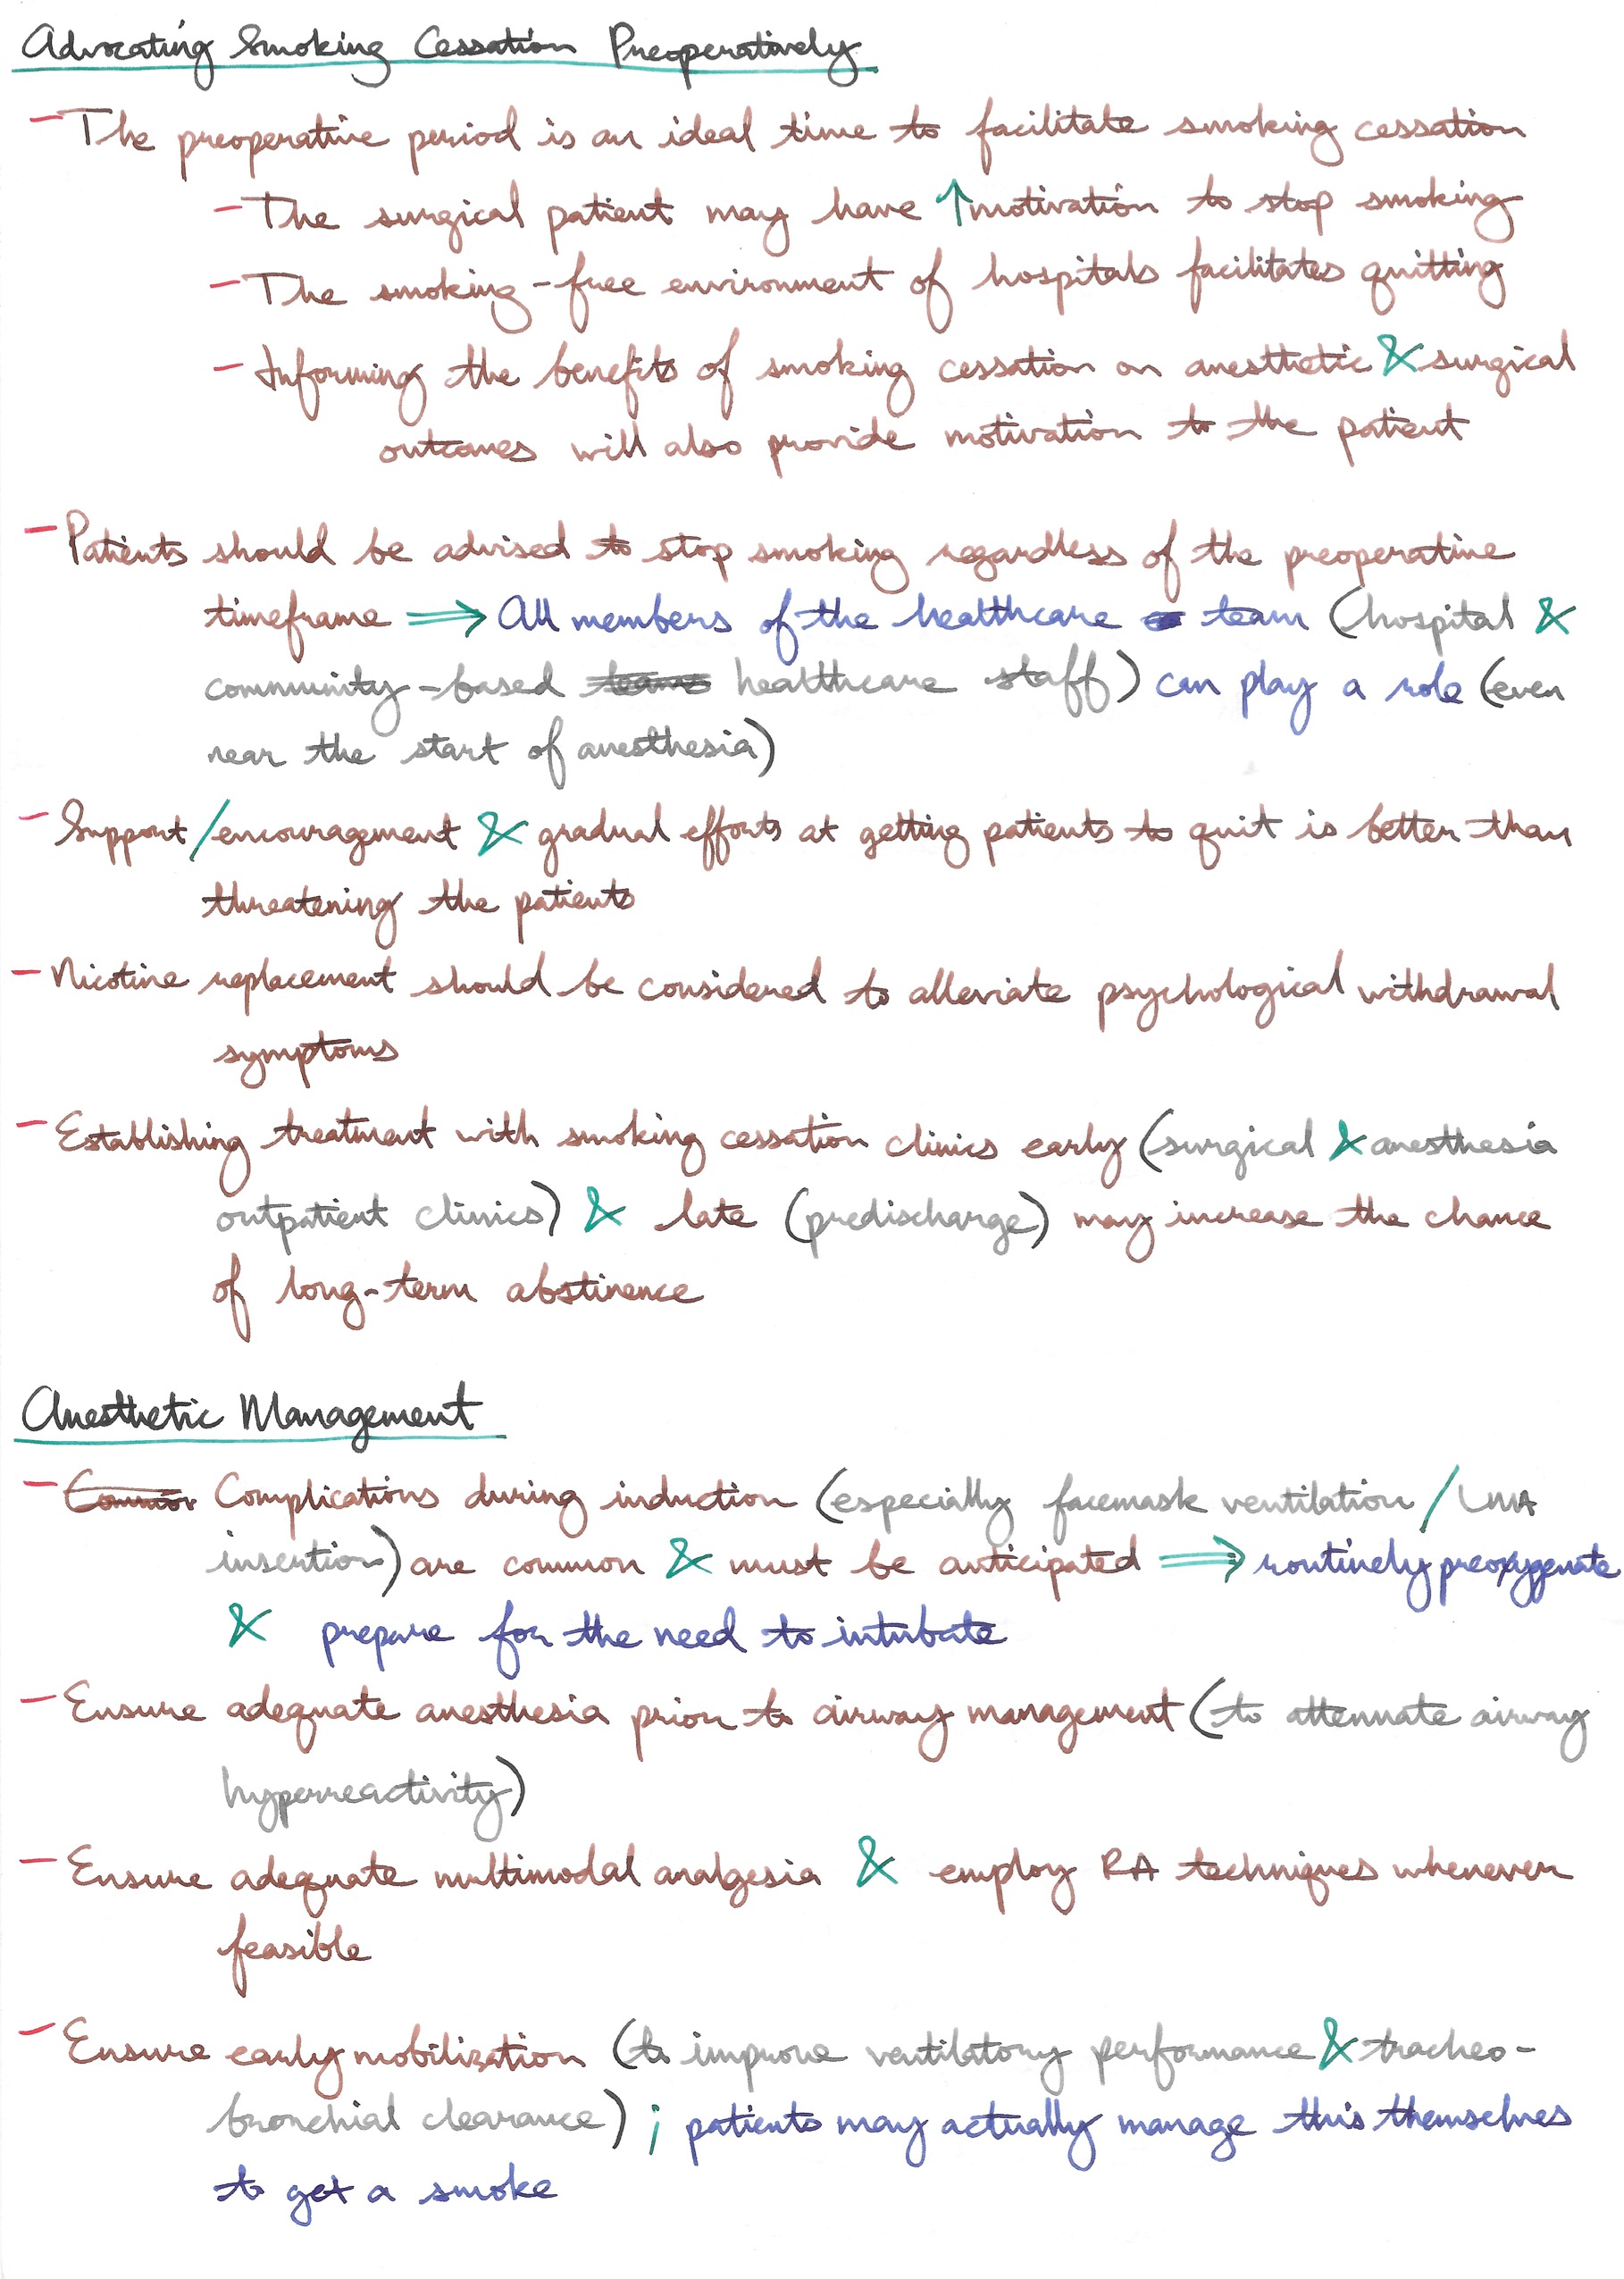 Advocating Smoking Cessation Preoperatively
- The preoperative period is an ideal time to facilitate smoking cessation
- The surgical patient may have ↑ motivation to stop smoking
- The smoking-free environment of hospitals facilitates quitting
- Informing the benefits of smoking cessation on anesthetic & surgical
outcomes will also provide motivation to the patient
- Patients should be advised to stop smoking regardless of the preoperative
timeframe ⇒ All members of the healthcare team (hospital &
community-based healthcare staff) can play a role (even
near the start of anesthesia)
- Support/encouragement & gradual efforts at getting patients to quit is better than
threatening the patients
- Nicotine replacement should be considered to alleviate psychological withdrawal
symptoms
- Establishing treatment with smoking cessation clinics early (surgical & anesthesia
outpatient clinics) & late (predischarge) may increase the chance
of long-term abstinence
Anesthetic Management
- Complications during induction (especially facemask ventilation/LMA
insertion) are common & must be anticipated ⇒ routinely preoxygenate
& prepare for the need to intubate
- Ensure adequate anesthesia prior to airway management (to attenuate airway
hyperreactivity)
- Ensure adequate multimodal analgesia & employ RA techniques whenever
feasible
- Ensure early mobilization (to improve ventilatory performance & tracheo-
bronchial clearance) ; patients may actually manage this themselves
to get a smoke